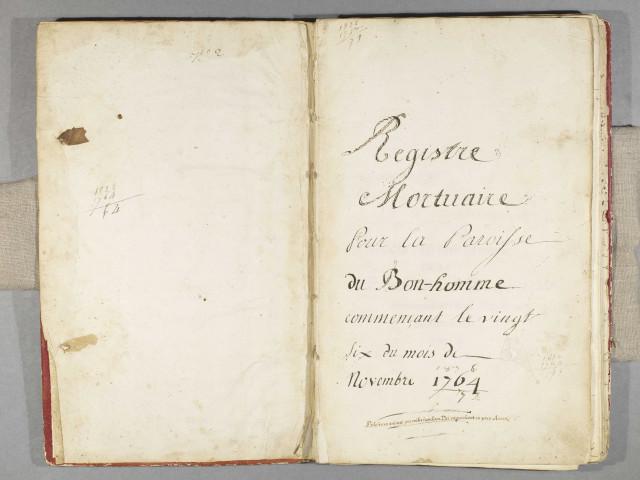 Registre
Mortuaire
pour la Paroisse
du Bon-homme
commençant le vingt
six du mois de
Novembre 1764